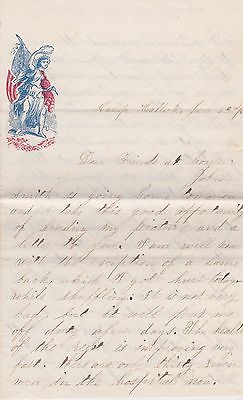 Camp Halleck Jan 22
Dear Friends at home
John
Smith is going home tomorrow
and I take this good opportunity
of sending my picture and a
letter to you. I am well now
with the exception of a lame
back, which I got hurt
while shuffling. It is not very
bad, but it will put me
off duty a few days. The health
of the Regt is improving very
fast. There are only thirty seven
men in the hospital now.